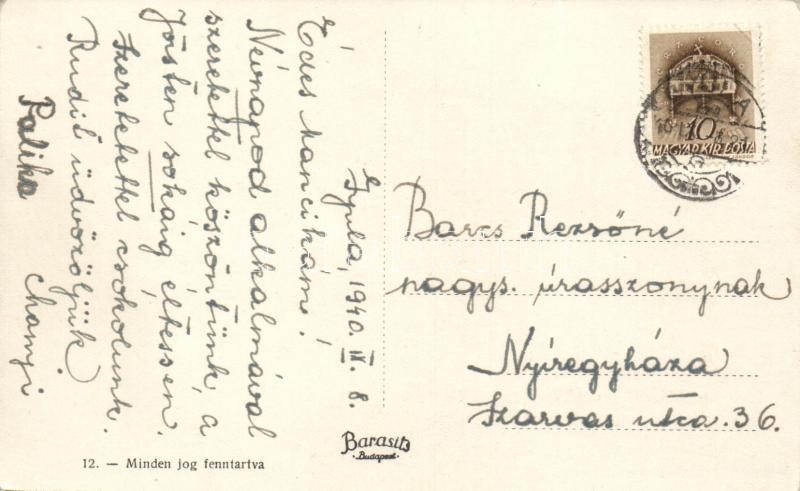 Gyula, 1940. IX. 8.
Édes Mancikám!
Névnapod alkalmával
szeretettel köszöntünk, a
Jóisten sokáig éltessen.
Szeretettel csokolunk.
Rudit üdvözöljük
Palika
Barcs Rezsőné
nagys. úrasszonynak
Nyíregyháza
Szarvas utca. 36.
10
MAGYAR KIR. POSTA
Barasits
Budapest
12. — Minden jog fenntartva